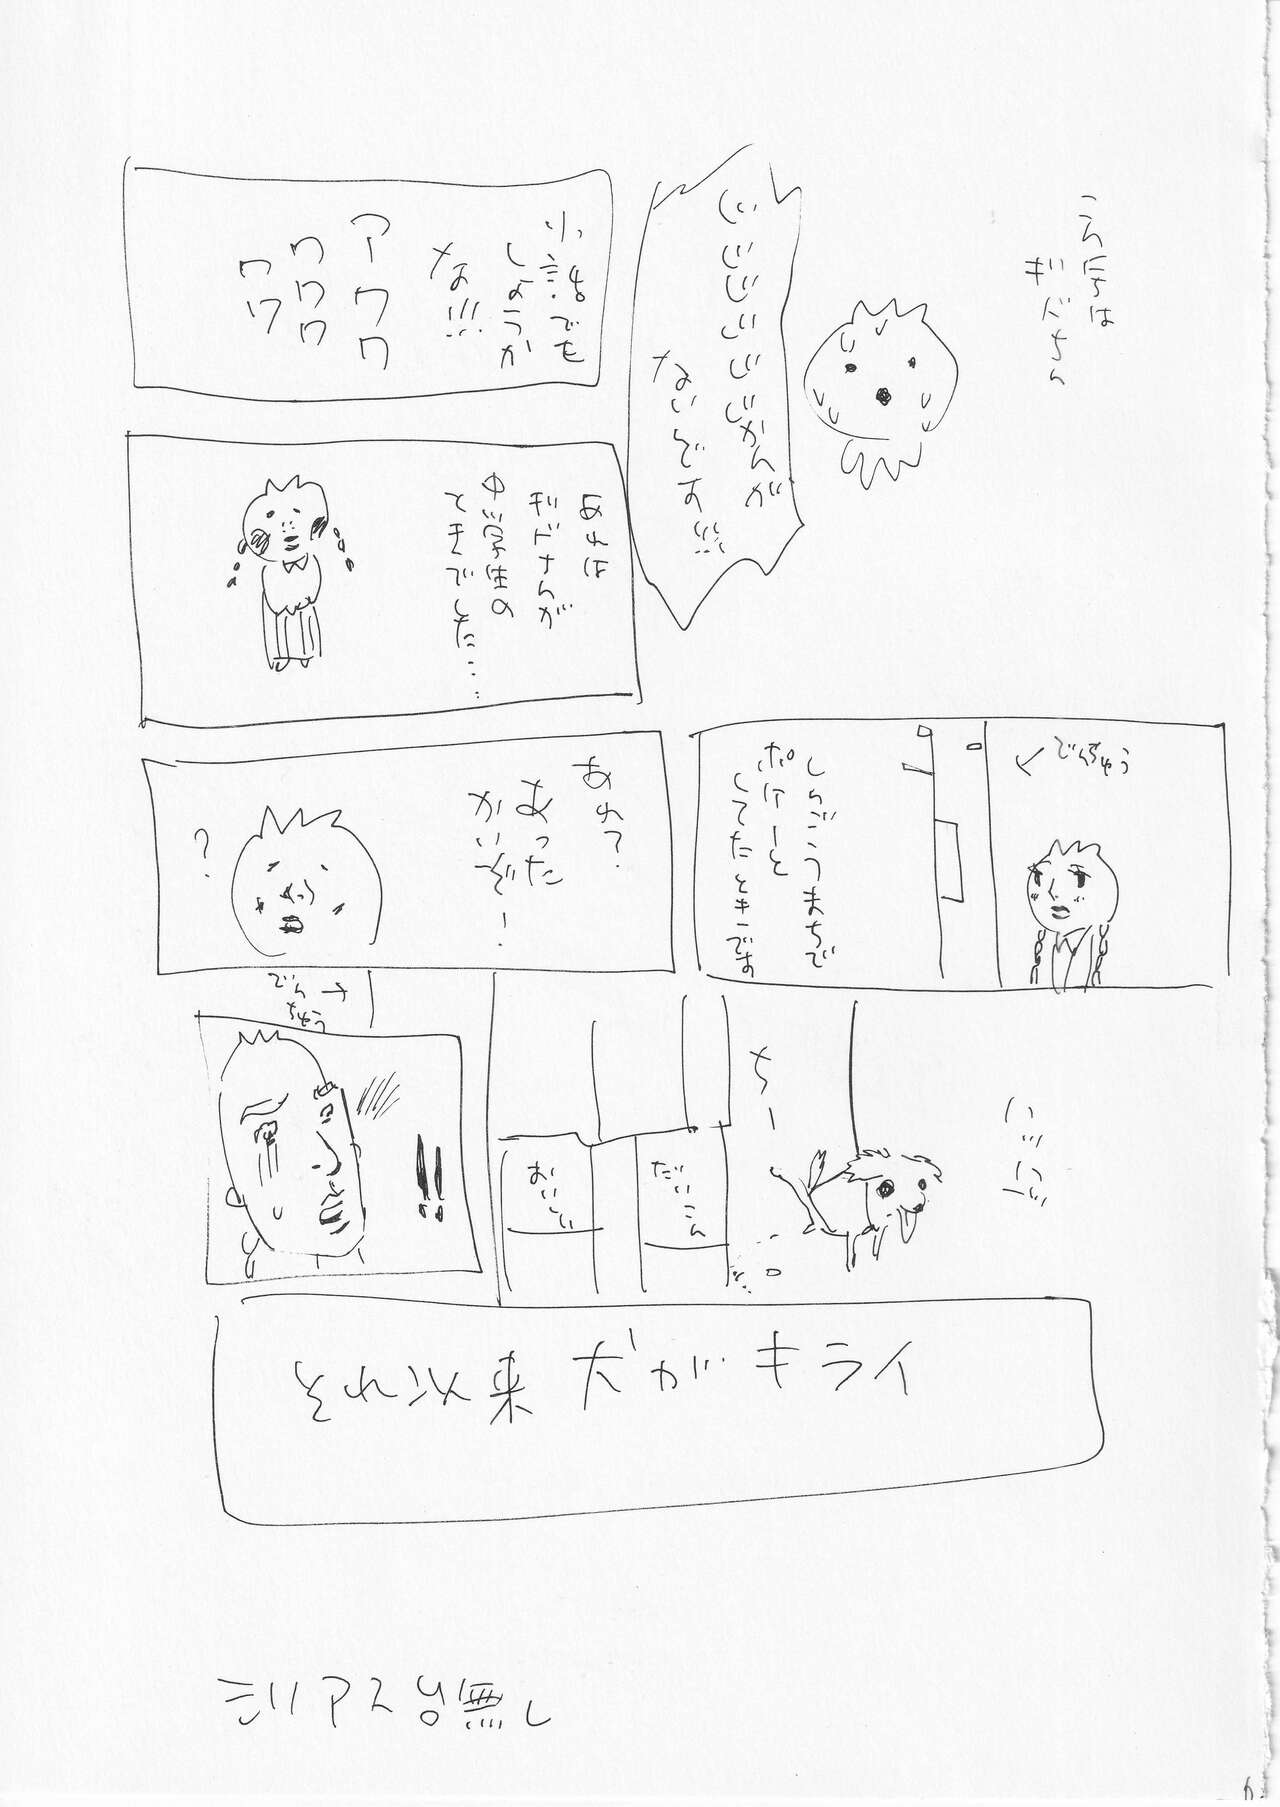 じじじじじじかんが
ないんです!!!
小話でも
しようか
な!!!
アワワ
ワワワ
ワワ
あれは
ギドさんが
中学生の
ときでした……
でんちゅう
しんごうまちで
ボケーと
してたときです
あれ?
あった
かいぞ!
?
でん
ちゅう
ハッハッ
ちー
だいこん
おいしい
!!
それ以来 犬がキライ
シリアス皆無し